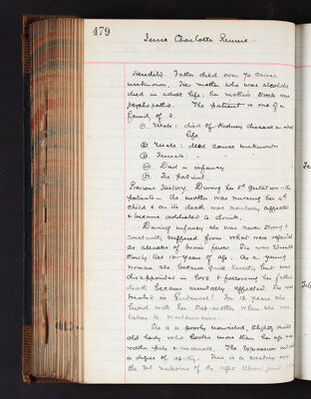 479
Jessie Charlotte Rennie.
Heredity. Father died over 70 cause
unknown. Her mother who was alcoholic
died in adult life. Her mother's stock was
psychopathic. The patient is one of a
family of 5.
① Male: died of kidney disease in adult
life
② Male: dead cause unknown
③ Female: " "
④ Died in infancy
⑤ The patient
Previous History. During her 5th gestation - the
patients - the mother was nursing her 4th
child & on its death was mentally affected
& became addicted to drink.
During infancy she was never strong &
constantly suffered from what were regarded
as attacks of brain fever. She was
slowly till 12 years of age. As a young
woman she became quite healthy but was
disappointed in love & following her father's
death became mentally affected. She was
treated in . For 12 years she
lived with her step-mother when she was
taken to
She is a poorly nourished, slightly built
old lady who looks more than her age
rather pale & anaemic. The expression
a degree of apathy. There is a
the of the right elbow joint